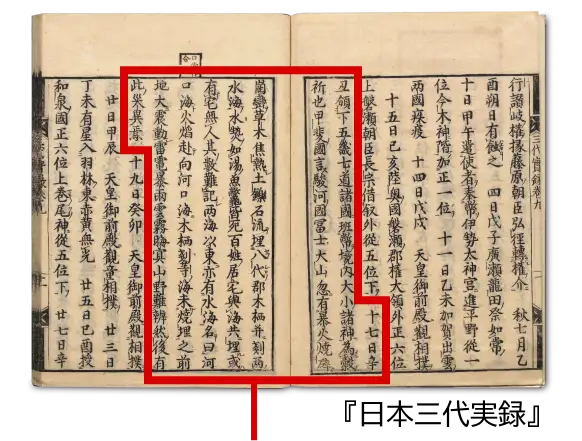 行讃岐權掾藤原朝臣弘徑轉權介 秋七月乙
酉朔日有蝕之 四日戊子廣瀬龍田祭如常
十日甲午遣使者奉幣伊勢太神宮進平野從一
位今木神階加正一位 十一日乙未加賀出雲
兩國疾疫 十四日戊戌 天皇御前殿觀相撲
十五日己亥陸奥國磐瀬郡權大領外正六位
上磐瀬朝臣長宗借叙外從五位下 十七日辛
丑頒下五畿七道諸國班幣境内大小諸神爲
祈也甲斐國言駿河國冨士大山忽有暴火燒碎
崗巒草木焦熱土鑠石流埋八代郡本栖并剗兩
水海水熱如湯魚鼈皆死百姓居宅與海共埋或
有宅無人其數難記兩海以東亦有水海名曰河
口海火焰赴向河口海本栖剗等海未燒埋之前
地大震動雷電暴雨雲霧晦冥山野難辨然後有
此災異焉 十九日癸卯 天皇御前殿觀相撲
廿日甲辰 天皇御前殿觀童相撲 廿三日
丁未有星入羽林東赤黄無光 廿五日己酉授
和泉國正六位上巻尾神從五位下 廿七日辛
三代實録巻九
『日本三代実録』